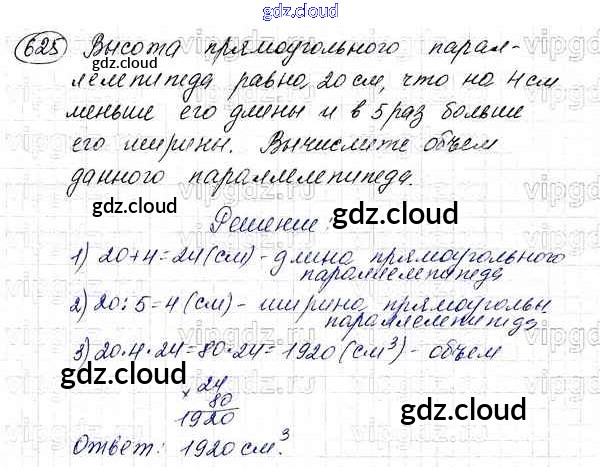 gdz.cloud
625 Высота прямоугольного парал-
gdz.cloud gdz.cloud
лелепипеда равна 20 см, что на 4 см
меньше его длины и в 5 раз больше
его ширины. Вычислите объем
данного параллелепипеда.
gdz.cloud gdz.cloud
Решение:
1) 20+4=24(см) - длина прямоугольного
параллелепипеда
2) 20:5=4(см) - ширина прямоугольн.
параллелепипеда
3) 20·4·24=80·24=1920(см³) - объем
gdz.cloud
× 24
80
gdz.cloud
1920
Ответ: 1920 см³.
gdz.cloud